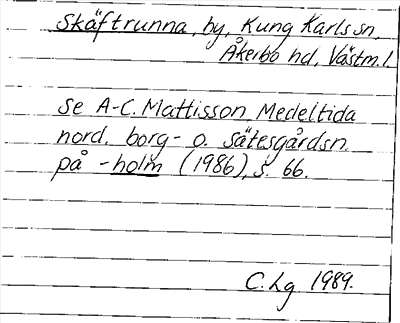 Skäftrunna, by, Kung Karls sn,
Åkerbo hd, Västm. l
se A-C. Mattisson, Medeltida
nord. borg- o. sätesgårdsn.
på -holm (1986), s. 66.
C. Lg 1989.